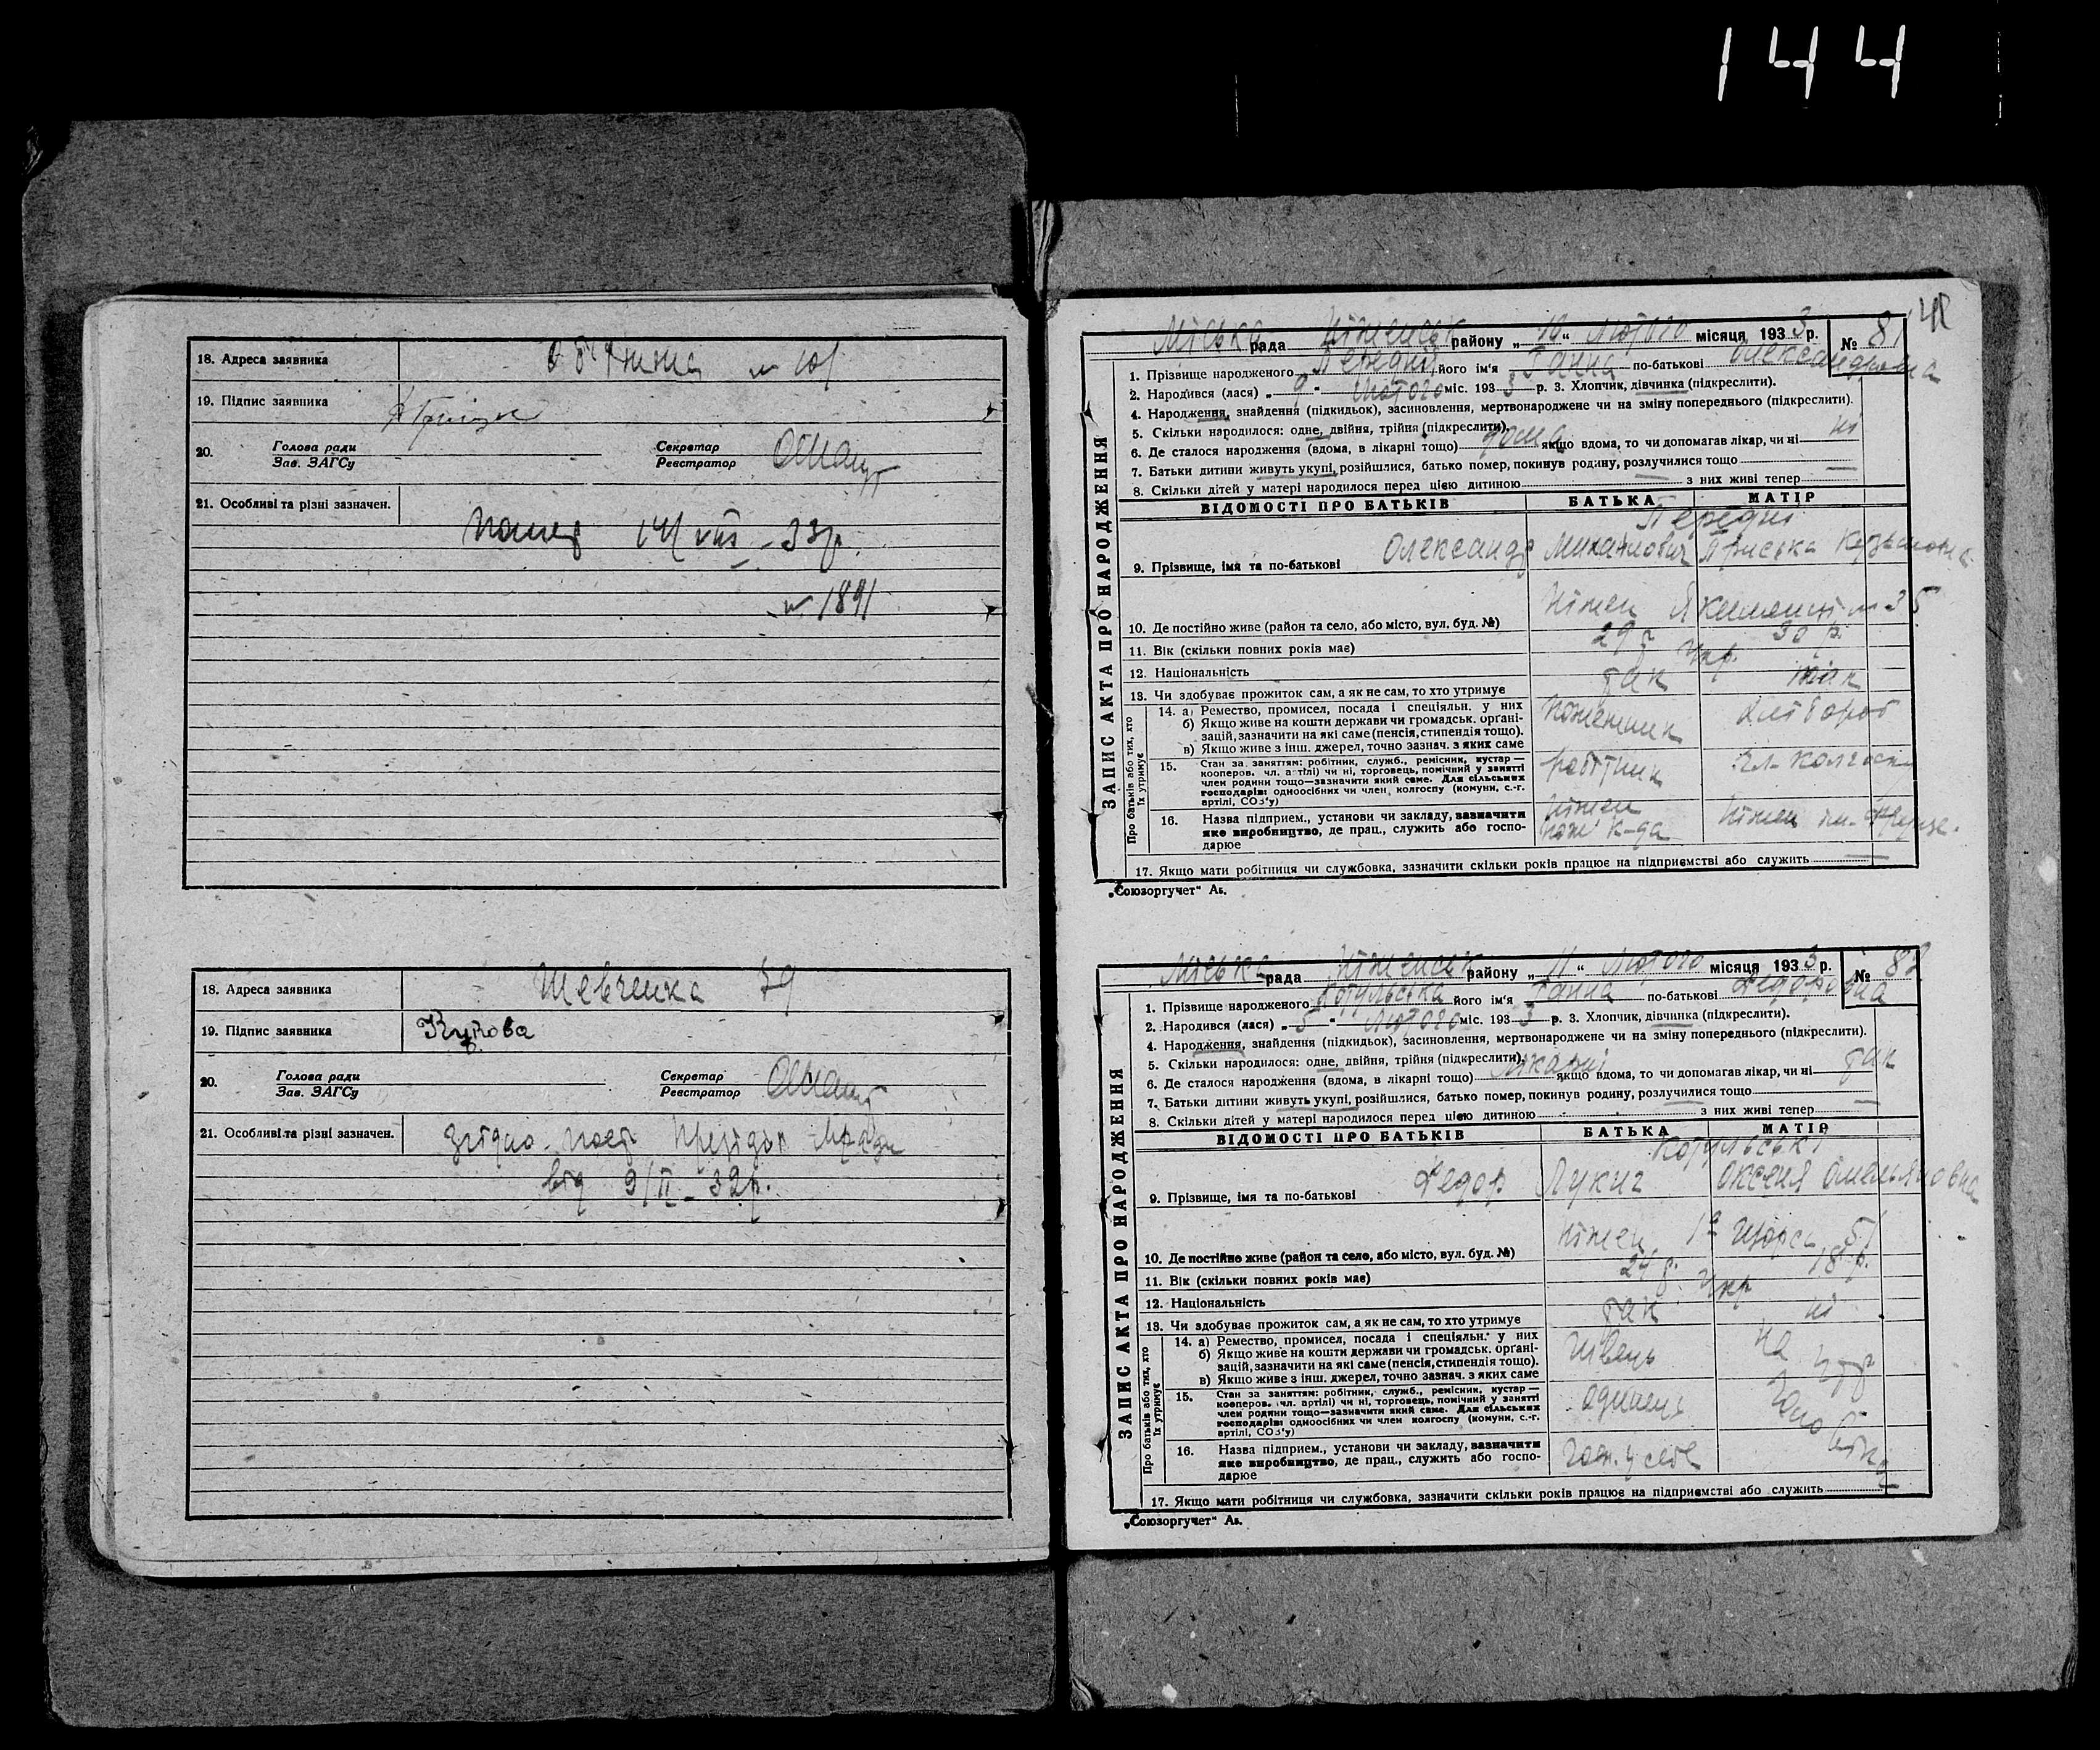 144
18. Адреса заявника
19. Підпис заявника
20. Голова ради
Зав. ЗАГСу
Секретар
Реєстратор
21. Особливі та різні зазначен.
помер 14/VIII - 33р.
№ 1891
18. Адреса заявника Шевченка 79
19. Підпис заявника
20. Голова ради
Зав. ЗАГСу
Секретар
Реєстратор
21. Особливі та різні зазначен. згідно пост. Презідії
від 9/II - 32р.
ЗАПИС АКТА ПРО НАРОДЖЕННЯ
Міська рада Ніженськ району „10“ Лютого місяця 1933 р. № 81
1. Прізвище народженого його ім'я Ганна по-батькові Олександровна
2. Народився (лася) „9“ Лютого міс. 1933 р. 3. Хлопчик, дівчинка (підкреслити).
4. Народження, знайдення (підкидьок), засиновлення, мертвонароджене чи на зміну попереднього (підкреслити).
5. Скільки народилося: одне, двійня, трійня (підкреслити).
6. Де сталося народження (вдома, в лікарні тощо) дома якщо вдома, то чи допомагав лікар, чи ні ні
7. Батьки дитини живуть укупі, розійшлися, батько помер, покинув родину, розлучилися тощо —
8. Скільки дітей у матері народилося перед цією дитиною — з них живі тепер —
ВІДОМОСТІ ПРО БАТЬКІВ БАТЬКА МАТІР
Передні
9. Прізвище, імя та по-батькові Олександр Михайлович Приська
10. Де постійно живе (район та село, або місто, вул. буд. №) Ніжен № 35
11. Вік (скільки повних років має) 29 р. 30 р.
12. Національність Укр.
13. Чи здобуває прожиток сам, а як не сам, то хто утримує так так
Про батьків або тих, хто їх утримує
14. а) Ремество, промисел, посада і спеціяльн. у них
б) Якщо живе на кошти держави чи громадськ. органі-
зацій, зазначити на які саме (пенсія, стипендія тощо).
в) Якщо живе з інш. джерел, точно зазнач. з яких саме
хлібороб
15. Стан за заняттям: робітник, служб., ремісник, кустар —
кооперов. чл. артілі) чи ні, торговець, помічний у занятті
член родини тощо—зазначити який саме. Для сільських
господарів: одноосібних чи член колгоспу (комуни, с.-г.
артілі, СОЗ'у)
робітник чл. колгосп
16. Назва підприєм., установи чи закладу, зазначити
яке виробництво, де прац., служить або госпо-
дарює
Ніжен
пож к-да
17. Якщо мати робітниця чи службовка, зазначити скільки років працює на підприємстві або служить —
„Союзоргучет“ Аз.
ЗАПИС АКТА ПРО НАРОДЖЕННЯ
Міська рада Ніженськ району „11“ Лютого місяця 1933 р. № 82
1. Прізвище народженого Котульська його ім'я Ганна по-батькові Федоровна
2. Народився (лася) „5“ Лютого міс. 1933 р. 3. Хлопчик, дівчинка (підкреслити).
4. Народження, знайдення (підкидьок), засиновлення, мертвонароджене чи на зміну попереднього (підкреслити).
5. Скільки народилося: одне, двійня, трійня (підкреслити).
6. Де сталося народження (вдома, в лікарні тощо) лікарні якщо вдома, то чи допомагав лікар, чи ні так
7. Батьки дитини живуть укупі, розійшлися, батько помер, покинув родину, розлучилися тощо —
8. Скільки дітей у матері народилося перед цією дитиною — з них живі тепер —
ВІДОМОСТІ ПРО БАТЬКІВ БАТЬКА МАТІР
Котульські
9. Прізвище, імя та по-батькові Федор Лукич Оксенія Омельяновна
10. Де постійно живе (район та село, або місто, вул. буд. №) Ніжен Щорса 51
11. Вік (скільки повних років має) 24 р. 18 р.
12. Національність Укр
13. Чи здобуває прожиток сам, а як не сам, то хто утримує так ні
Про батьків або тих, хто їх утримує
14. а) Ремество, промисел, посада і спеціяльн. у них
б) Якщо живе на кошти держави чи громадськ. органі-
зацій, зазначити на які саме (пенсія, стипендія тощо).
в) Якщо живе з інш. джерел, точно зазнач. з яких саме
швець на утр
15. Стан за заняттям: робітник, служб., ремісник, кустар —
кооперов. чл. артілі) чи ні, торговець, помічний у занятті
член родини тощо—зазначити який саме. Для сільських
господарів: одноосібних чи член колгоспу (комуни, с.-г.
артілі, СОЗ'у)
одинець
16. Назва підприєм., установи чи закладу, зазначити
яке виробництво, де прац., служить або госпо-
дарює
у себе
17. Якщо мати робітниця чи службовка, зазначити скільки років працює на підприємстві або служить —
„Союзоргучет“ Аз.